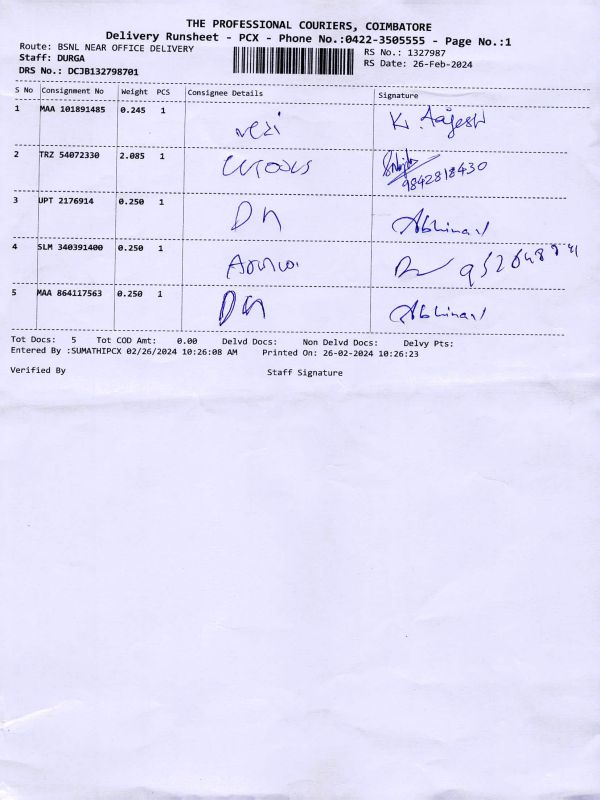 THE PROFESSIONAL COURIERS, COIMBATORE
Delivery Runsheet - PCX - Phone No.:0422-3505555 - Page No.:1
Route: BSNL NEAR OFFICE DELIVERY RS No.: 1327987
Staff: DURGA RS Date: 26-Feb-2024
DRS No.: DCJB132798701
S No Consignment No Weight PCS Consignee Details Signature
1 MAA 101891485 0.245 1 K. Rajesh
2 TRZ 54072330 2.085 1
9842818430
3 UPT 2176914 0.250 1 Abhinav
4 SLM 340391400 0.250 1
5 MAA 864117563 0.250 1 Abhinav
Tot Docs: 5 Tot COD Amt: 0.00 Delvd Docs: Non Delvd Docs: Delvy Pts:
Entered By :SUMATHIPCX 02/26/2024 10:26:08 AM Printed On: 26-02-2024 10:26:23
Verified By Staff Signature